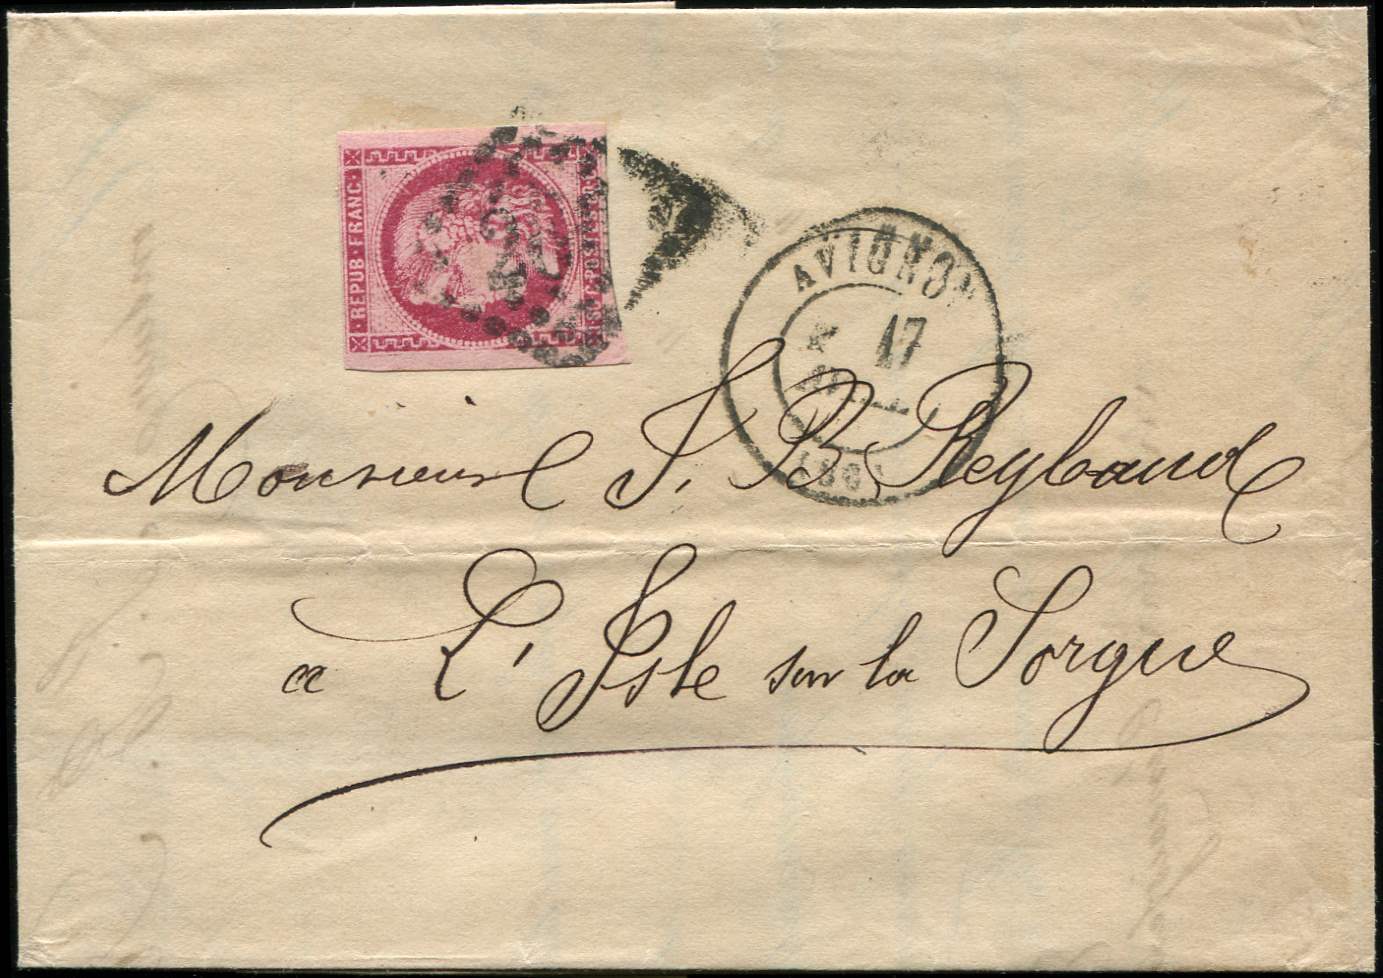 · REPUB · FRANC ·
AVIGNON
17
Monsieur J. B. Reybaud
a L'Isle sur la Sorgue